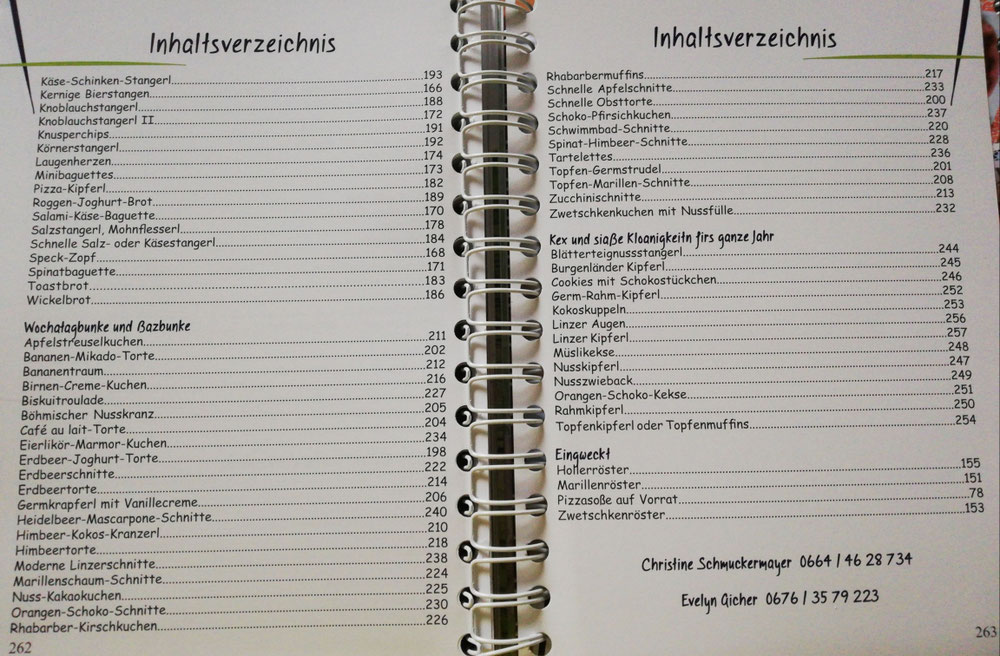 Inhaltsverzeichnis
Käse-Schinken-Stangerl 193
Kernige Bierstangen 166
Knoblauchstangerl 188
Knoblauchstangerl II 172
Knusperchips 191
Körnerstangerl 192
Laugenherzen 174
Minibaguettes 173
Pizza-Kipferl 182
Roggen-Joghurt-Brot 189
Salami-Käse-Baguette 170
Salzstangerl, Mohnflesserl 178
Schnelle Salz- oder Käsestangerl 184
Speck-Zopf 168
Spinatbaguette 171
Toastbrot 183
Wickelbrot 186
Wochatagbunke und Bazbunke
Apfelstreuselkuchen 211
Bananen-Mikado-Torte 202
Bananentraum 212
Birnen-Creme-Kuchen 216
Biskuitroulade 227
Böhmischer Nusskranz 205
Café au lait-Torte 204
Eierlikör-Marmor-Kuchen 234
Erdbeer-Joghurt-Torte 198
Erdbeerschnitte 222
Erdbeertorte 214
Germkrapferl mit Vanillecreme 206
Heidelbeer-Mascarpone-Schnitte 240
Himbeer-Kokos-Kranzerl 210
Himbeertorte 218
Moderne Linzerschnitte 238
Marillenschaum-Schnitte 224
Nuss-Kakaokuchen 225
Orangen-Schoko-Schnitte 230
Rhabarber-Kirschkuchen 226
262
Inhaltsverzeichnis
Rhabarbermuffins 217
Schnelle Apfelschnitte 233
Schnelle Obsttorte 200
Schoko-Pfirsichkuchen 237
Schwimmbad-Schnitte 220
Spinat-Himbeer-Schnitte 228
Tartelettes 236
Topfen-Germstrudel 201
Topfen-Marillen-Schnitte 208
Zucchinischnitte 213
Zwetschkenkuchen mit Nussfülle 232
Kex und siaße Kloanigkeitn firs ganze Jahr
Blätterteignussstangerl 244
Burgenländer Kipferl 245
Cookies mit Schokostückchen 246
Germ-Rahm-Kipferl 252
Kokoskuppeln 253
Linzer Augen 256
Linzer Kipferl 257
Müslikekse 248
Nusskipferl 247
Nusszwieback 249
Orangen-Schoko-Kekse 251
Rahmkipferl 250
Topfenkipferl oder Topfenmuffins 254
Eingweckt
Hollerröster 155
Marillenröster 151
Pizzasoße auf Vorrat 78
Zwetschkenröster 153
Christine Schmuckermayer 0664 / 46 28 734
Evelyn Aicher 0676 / 35 79 223
263